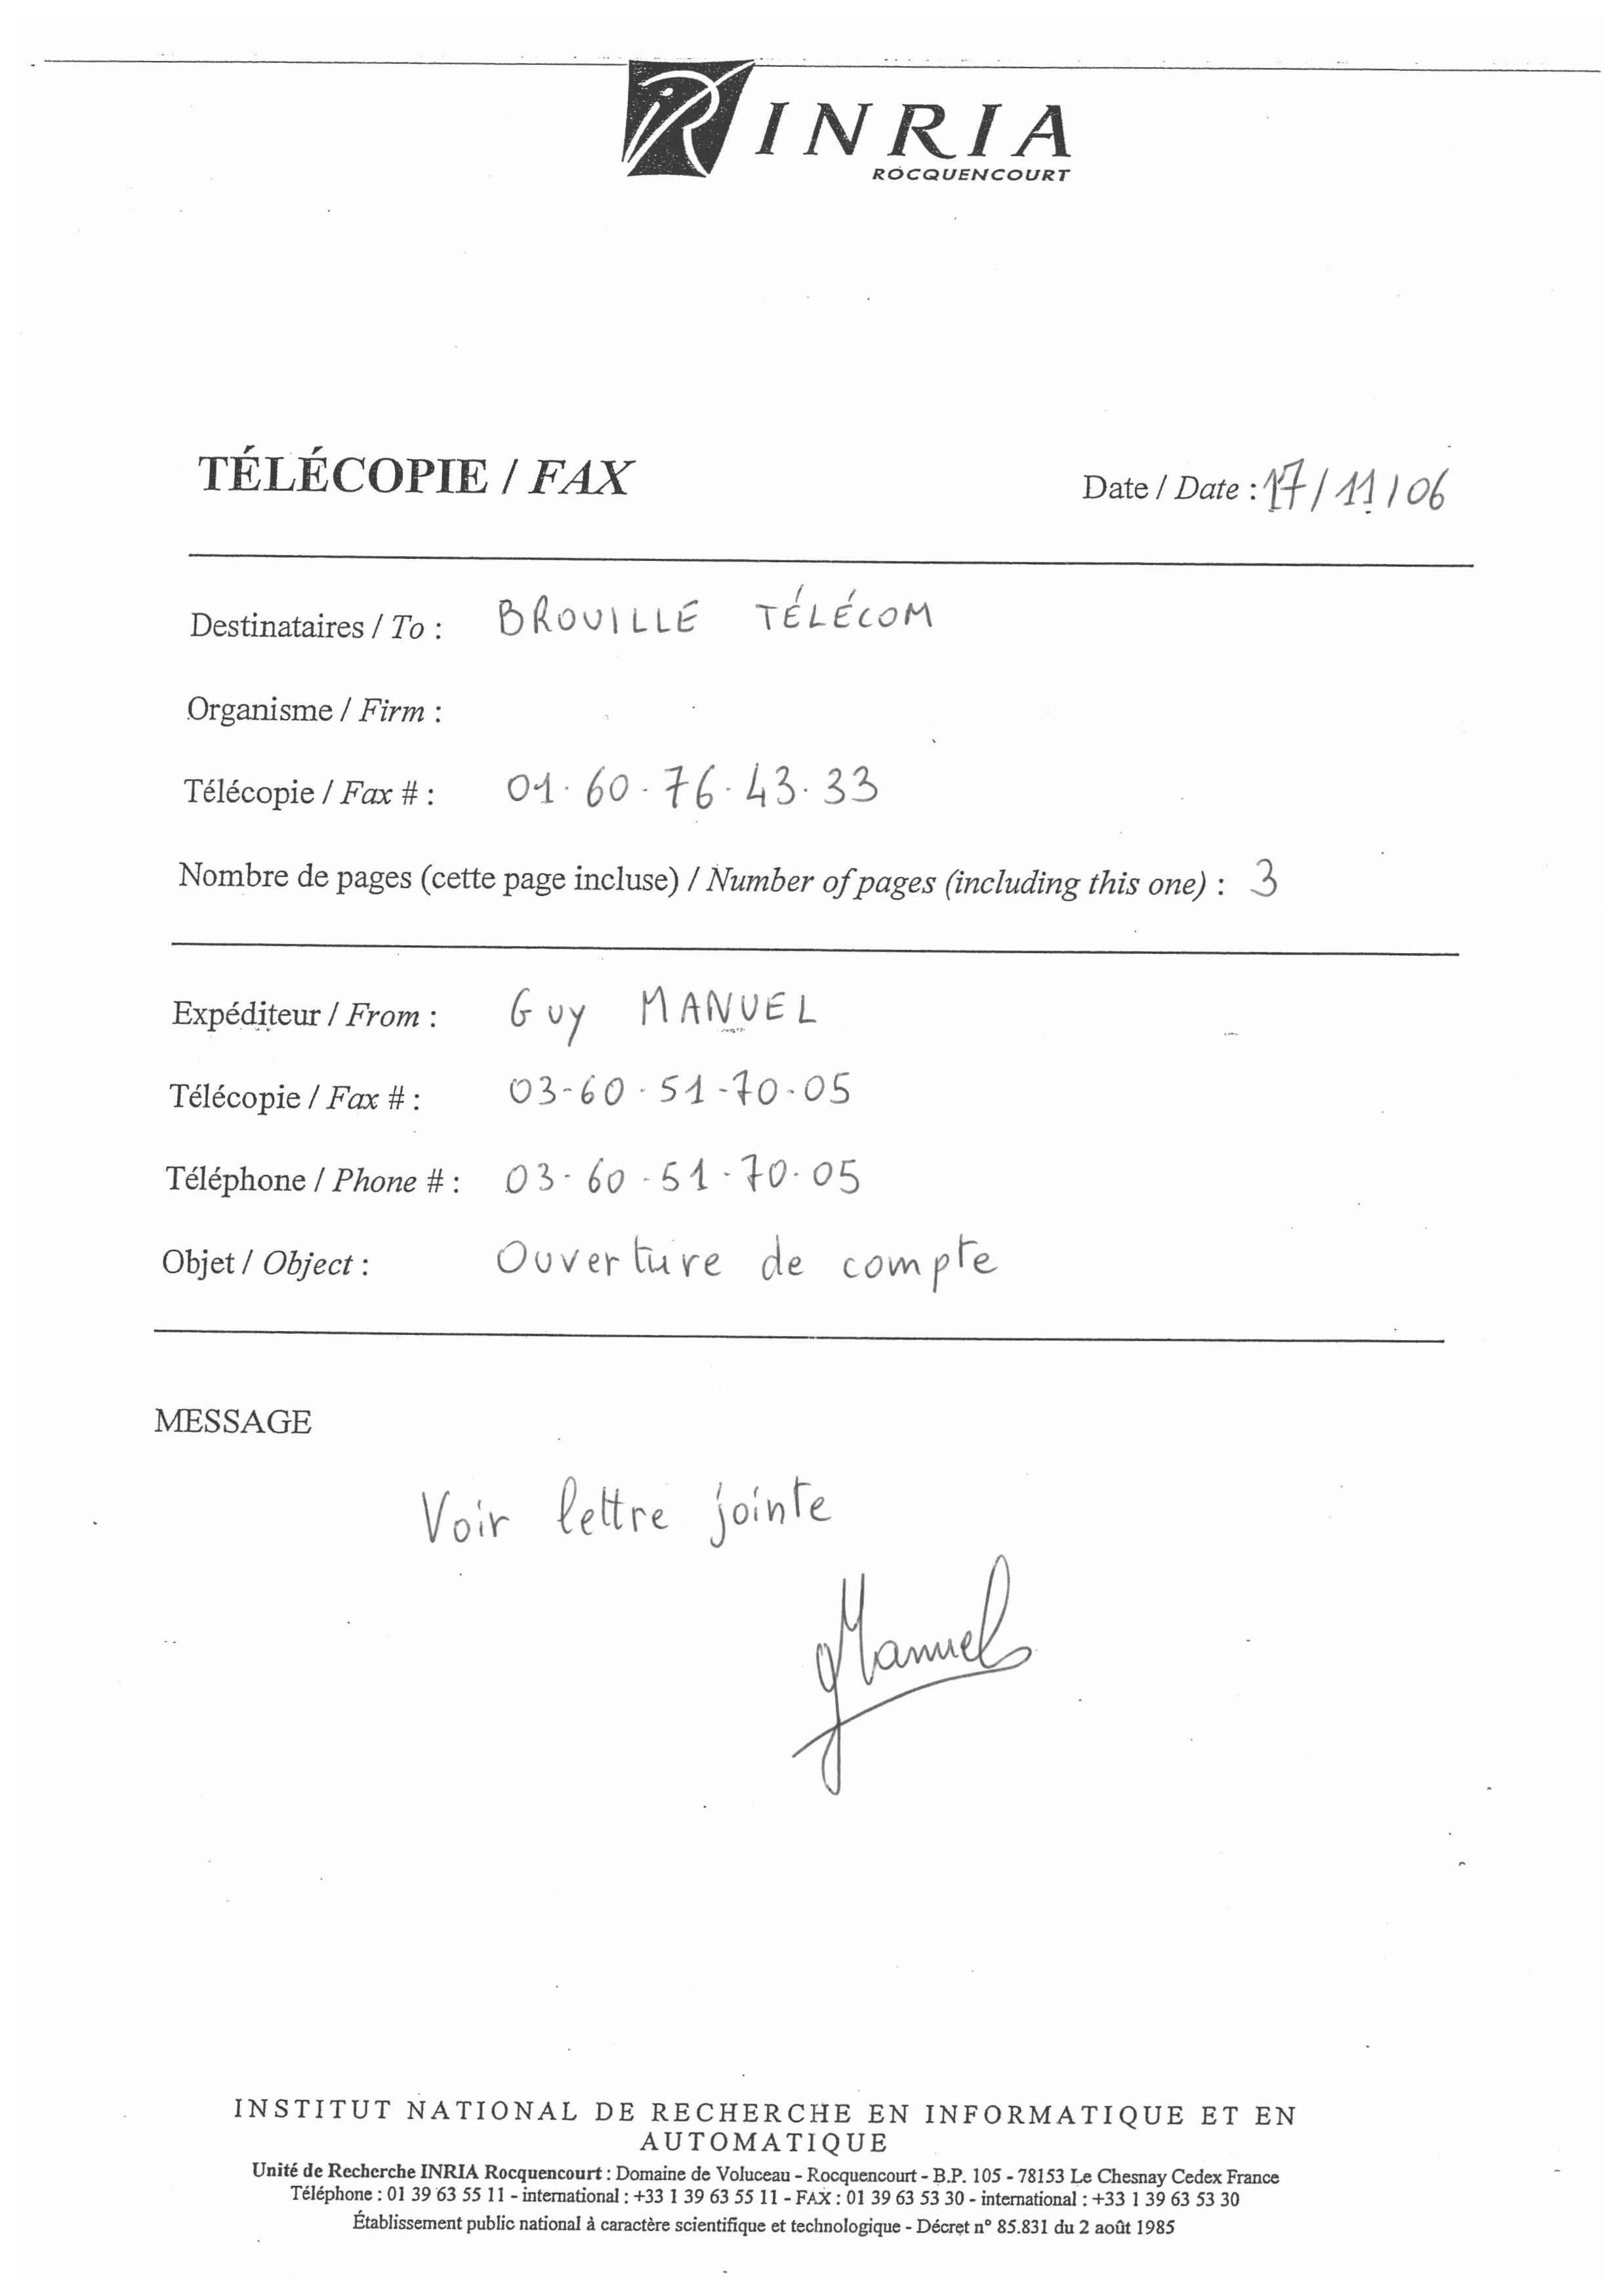 INRIA
ROCQUENCOURT
TÉLÉCOPIE / FAX
Date / Date : 17/11/06
Destinataires / To : BROUILLE TÉLÉCOM
Organisme / Firm :
Télécopie / Fax # : 01.60.76.43.33
Nombre de pages (cette page incluse) / Number of pages (including this one) : 3
Expéditeur / From : Guy MANUEL
Télécopie / Fax # : 03-60.51-70.05
Téléphone / Phone # : 03-60-51-70-05
Objet / Object : Ouverture de compte
MESSAGE
Voir lettre jointe
Manuel
INSTITUT NATIONAL DE RECHERCHE EN INFORMATIQUE ET EN
AUTOMATIQUE
Unité de Recherche INRIA Rocquencourt : Domaine de Voluceau - Rocquencourt - B.P. 105 - 78153 Le Chesnay Cedex France
Téléphone : 01 39 63 55 11 - international : +33 1 39 63 55 11 - FAX : 01 39 63 53 30 - international : +33 1 39 63 53 30
Établissement public national à caractère scientifique et technologique - Décret n° 85.831 du 2 août 1985